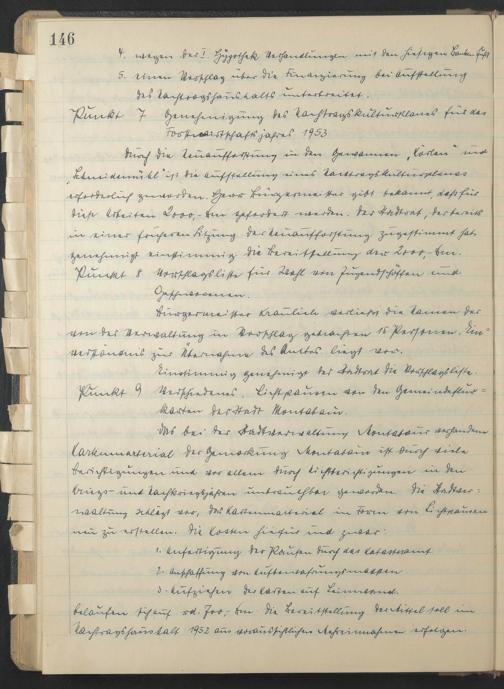 146
4. wegen der I. Hypothek Verhandlungen mit den hiesigen Banken führt
5. einen Vorschlag über die Finanzierung bei Aufstellung
des Nachtragshaushalts unterbreitet.
Punkt 7 Genehmigung des Nachtragskulturplanes für das
Forstwirtschaftsjahr 1953
Durch die Neuaufforstung in den Gewannen, und
"Schneidemühl" ist die Aufstellung eines Nachtragskulturplanes
erforderlich geworden. Herr Bürgermeister gibt bekannt, daß für
diese Arbeiten 2000,- DM gefordert werden. Der Stadtrat, der bereits
in einer früheren Sitzung der Neuaufforstung zugestimmt hat,
genehmigt einstimmig die Bereitstellung der 2000,- DM.
Punkt 8 Vorschlagsliste für Wahl von Jugendschöffen und
Geschworenen.
Bürgermeister Kraulich verliest die Namen der
von der Verwaltung in Vorschlag gebrachten 15 Personen. Ein-
verständnis zur Übernahme des Amtes liegt vor.
Einstimmig genehmigt der Stadtrat die Vorschlagsliste.
Punkt 9 Verschiedenes. Lichtpausen von den Gemeindeflur-
karten der Stadt Montabaur.
Das bei der Stadtverwaltung Montabaur vorhandene
Kartenmaterial der Gemarkung Montabaur ist durch viele
Berichtigungen und vor allem durch in den
Kriegs- und Nachkriegsjahren unbrauchbar geworden. Die Stadtver-
waltung schlägt vor, das Kartenmaterial in Form von Lichtpausen
neu zu erstellen. Die Kosten hierfür und zwar:
1. Anfertigung der Pausen durch das Katasteramt
2. Anschaffung von Aufbewahrungsmappen
3. Aufziehen der Karten auf Leinwand.
belaufen sich auf rd. 700,- DM. Die Bereitstellung der Mittel soll im
Nachtragshaushalt 1952 aus voraussichtlichen Mehreinnahmen erfolgen.